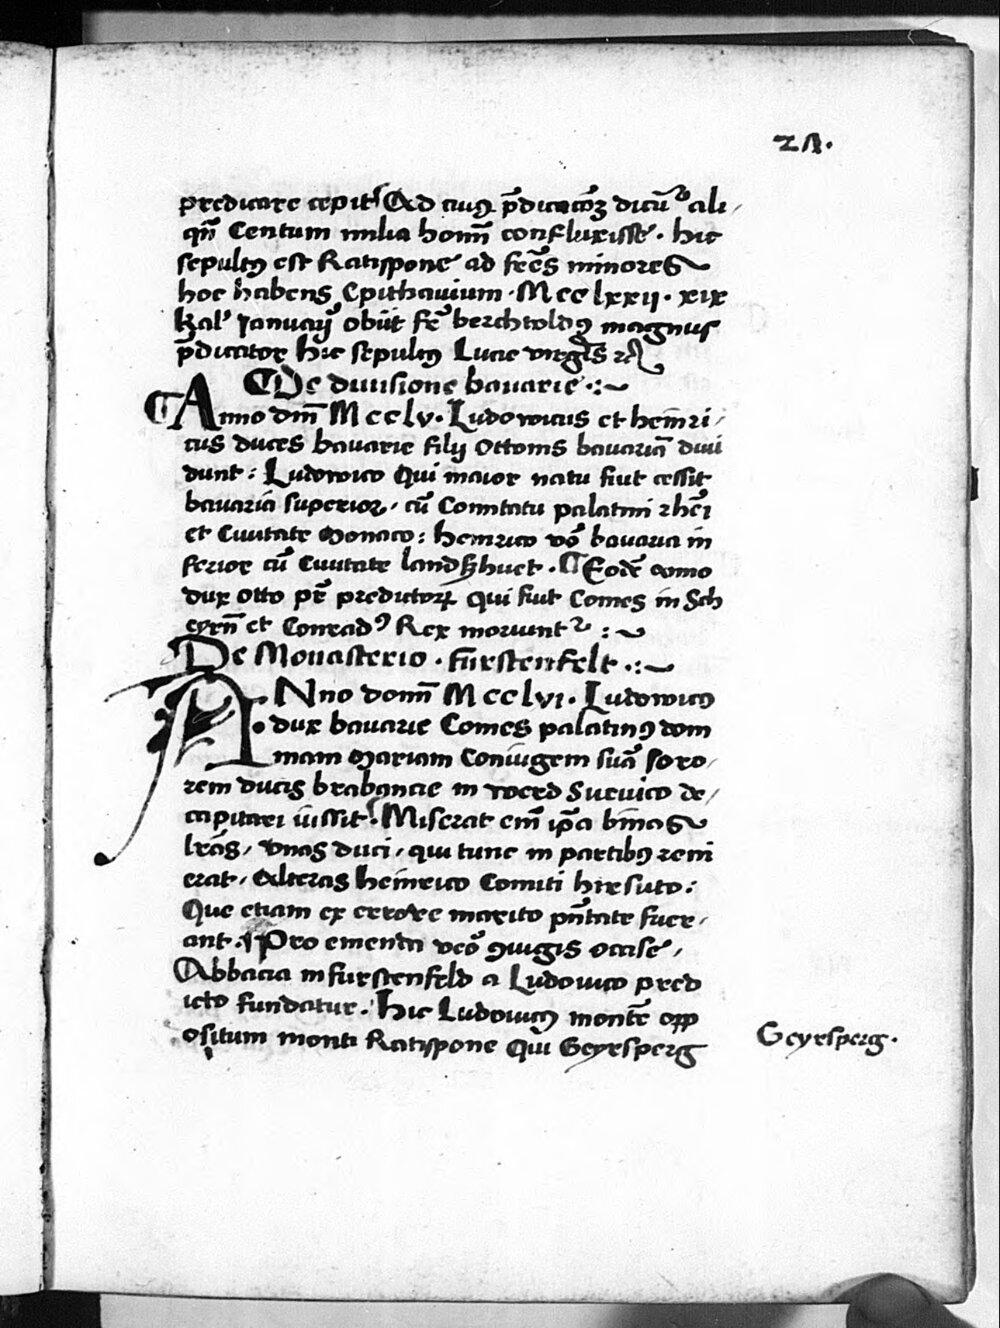 24.
predicare cepit Ad cuiꝰ p̄dicacōꝫ dicūt ali-
qn̄ Centum milia hom̄ confluxisse. hic
sepultꝰ est Ratispone ad fr̄es minores
hoc habens Epithavium. Mcclxxii. xix
kal' Januarij obiit fr̄ berchtoldꝰ magnus
p̄dicator hic sepultꝰ Lucie virgīs ꝛc
De diuisione bauarie
Anno dm̄ Mcclv. Ludowicus et heinri-
cus duces bauarie filij Ottonis bauariā diui
dunt: Ludowico Qui maior natu fuit cessit
bauaria superior, cū Comitatu palatini rhēi
et Ciuitate Monaco: heinrico vō bauaria in
ferior cū Ciuitate landßhuet. Eodē anno
dux Otto pr̄ predictorꝝ qui fuit Comes in Sch
eyrn̄ et Conradꝰ Rex moriunt᷑ :~
De Monasterio. furstenfelt .:~
ANno domī Mcclvi. Ludowicꝰ
dux bauarie Comes palatinꝰ dom
inam Mariam Coniugem suā soro-
rem ducis brabancie in werd Sueuico de-
capitari iussit. Miserat em̄ ip̄a binas
lr̄as, vnas duci, qui tunc in partibꝰ reni
erat, Alteras heinrico Comiti hirsuto:
Que etiam ex errore marito pn̄tate fuer-
ant. Pro emenda vero ꝯiugis occise,
Abbacia in furstenfeld a Ludouico pred
icto fundatur. Hic Ludouicꝰ montē opp
ositum monti Ratispone Qui Geyrsperg
Geyrsperg.